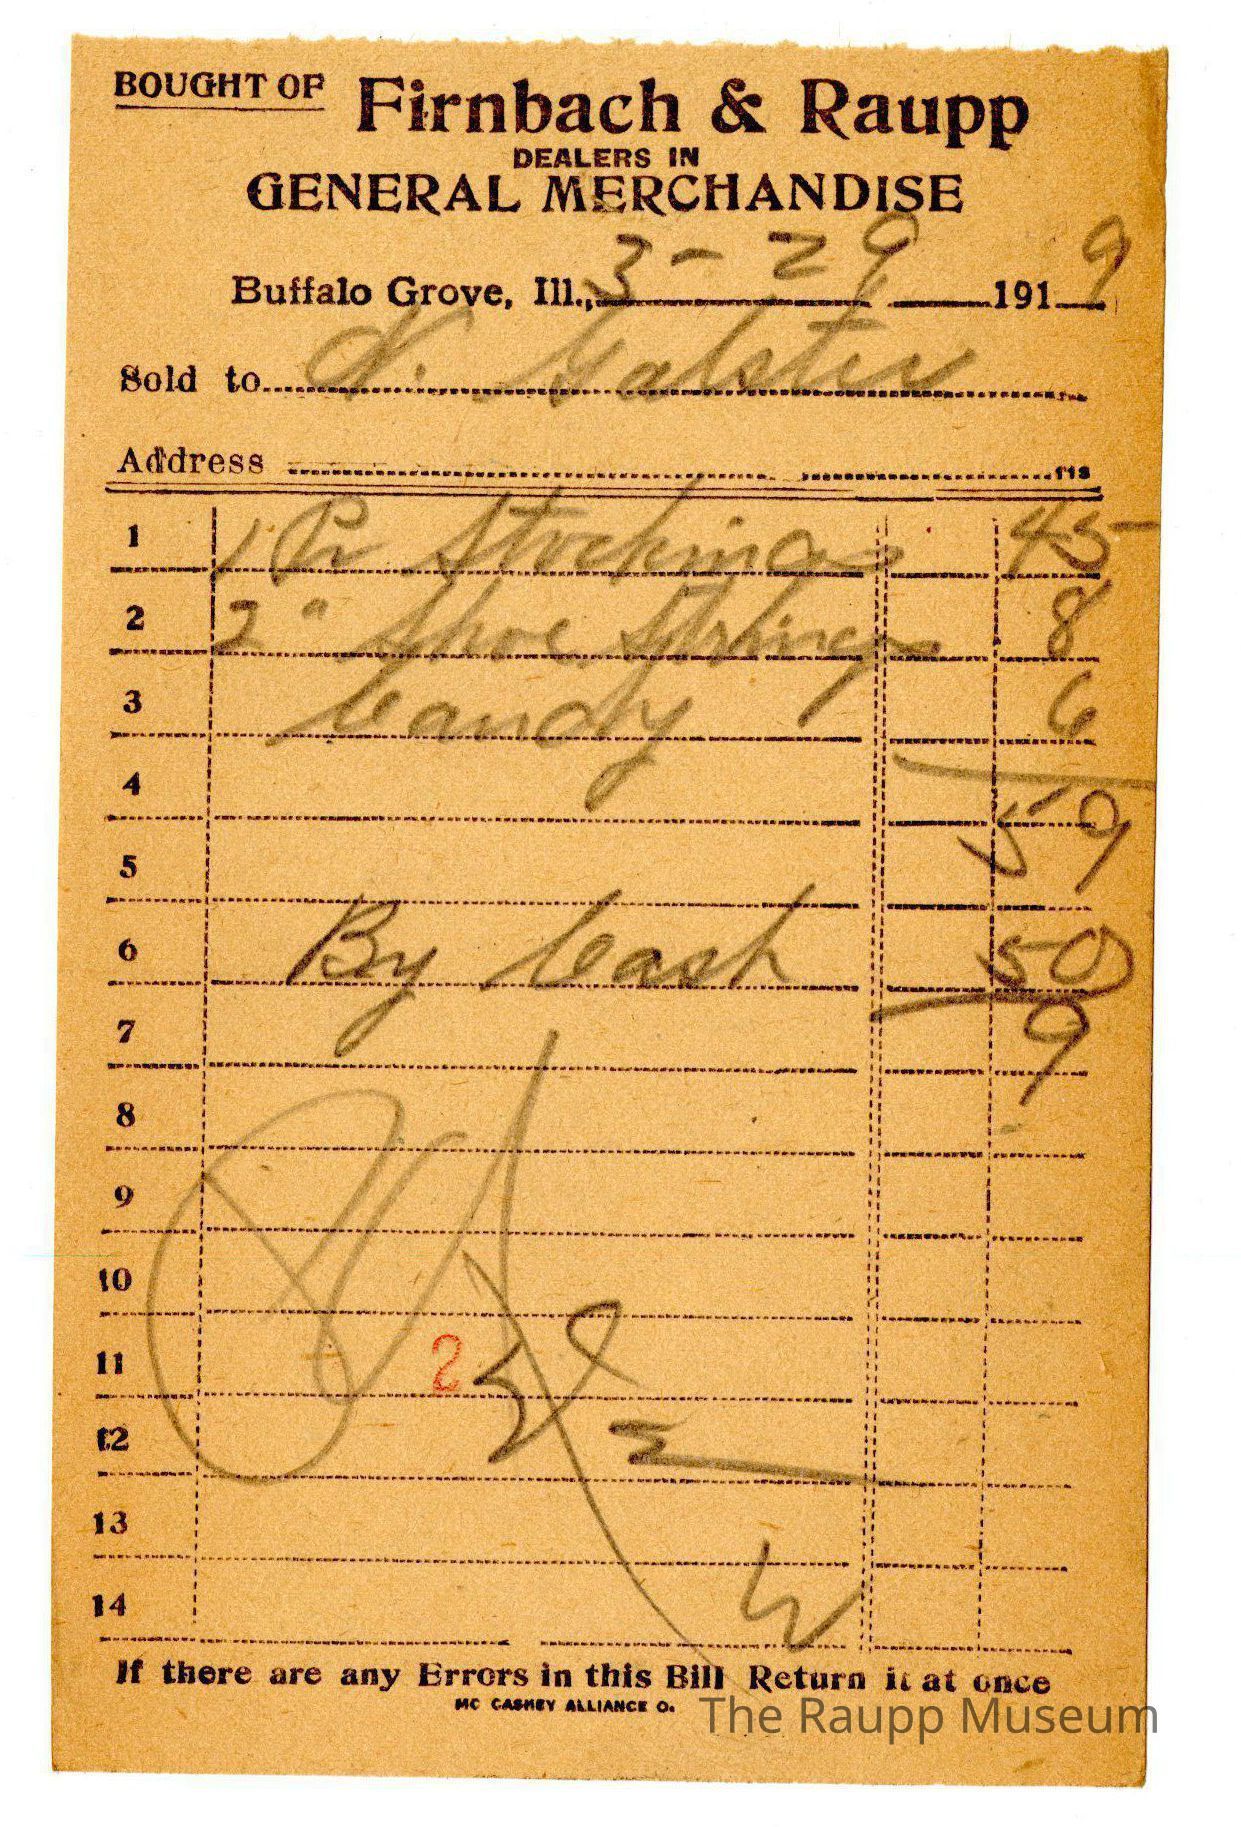 BOUGHT OF Firnbach & Raupp
DEALERS IN
GENERAL MERCHANDISE
Buffalo Grove, Ill., 3-29 1919
Sold to N. Galster
Address
1 1 Pr Stockings 45
2 2 " Shoe Strings 8
3 Candy 6
4 59
5
6 By Cash 50
7 9
8
9
10
11 2
12
13
14 W
If there are any Errors in this Bill Return it at once
MC CASKEY ALLIANCE O.
The Raupp Museum